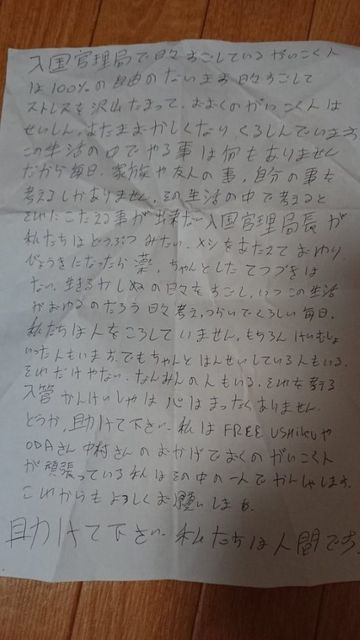 入国管理局で日々すごしているがいこく人
は100%の自由のないまま日々すごして
ストレスを沢山たまって、おおくのがいこく人は
せいしん、あたまおかしくなりくるしんでいます
この生活の中でやる事は何もありません
だから毎日、家族や友人の事、自分の事を
考えるしかありません、その生活の中で考えると
それにこたえる事が出来ない入国管理局長が
私たちはどうぶつみたい、メシをあたえておわり
びょうきになったら薬、ちゃんとしたてつづきは
ない、生きるかしぬの日々をすごし、いつこの生活
がおわるのだろう日々考え、つらいでくるしい毎日、
私たちは人をころしていません、もちろんけいむしょ
いった人もいます、でもちゃんとはんせいしている人もいる、
それだけやない、なんみんの人もいる、それを考える
入管かんけいしゃは心はまったくありません
どうか、助けて下さい、私はFREE USHIKUや
ODAさん中村さんのおかげでおくのがいこく人
が頑張っている私はその中の一人でかんしゃします、
これからもよろしくお願いします、
助けて下さい、私たちは人間です